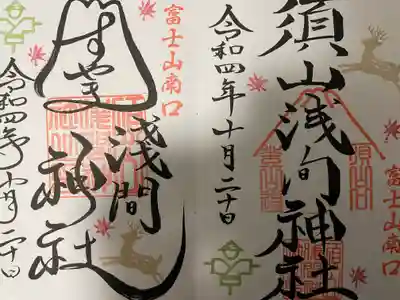 須山浅间神社
令和四年十月二十日
富士山南口
富士山南口
すやま
淺間
神社
令和四年十月二十日